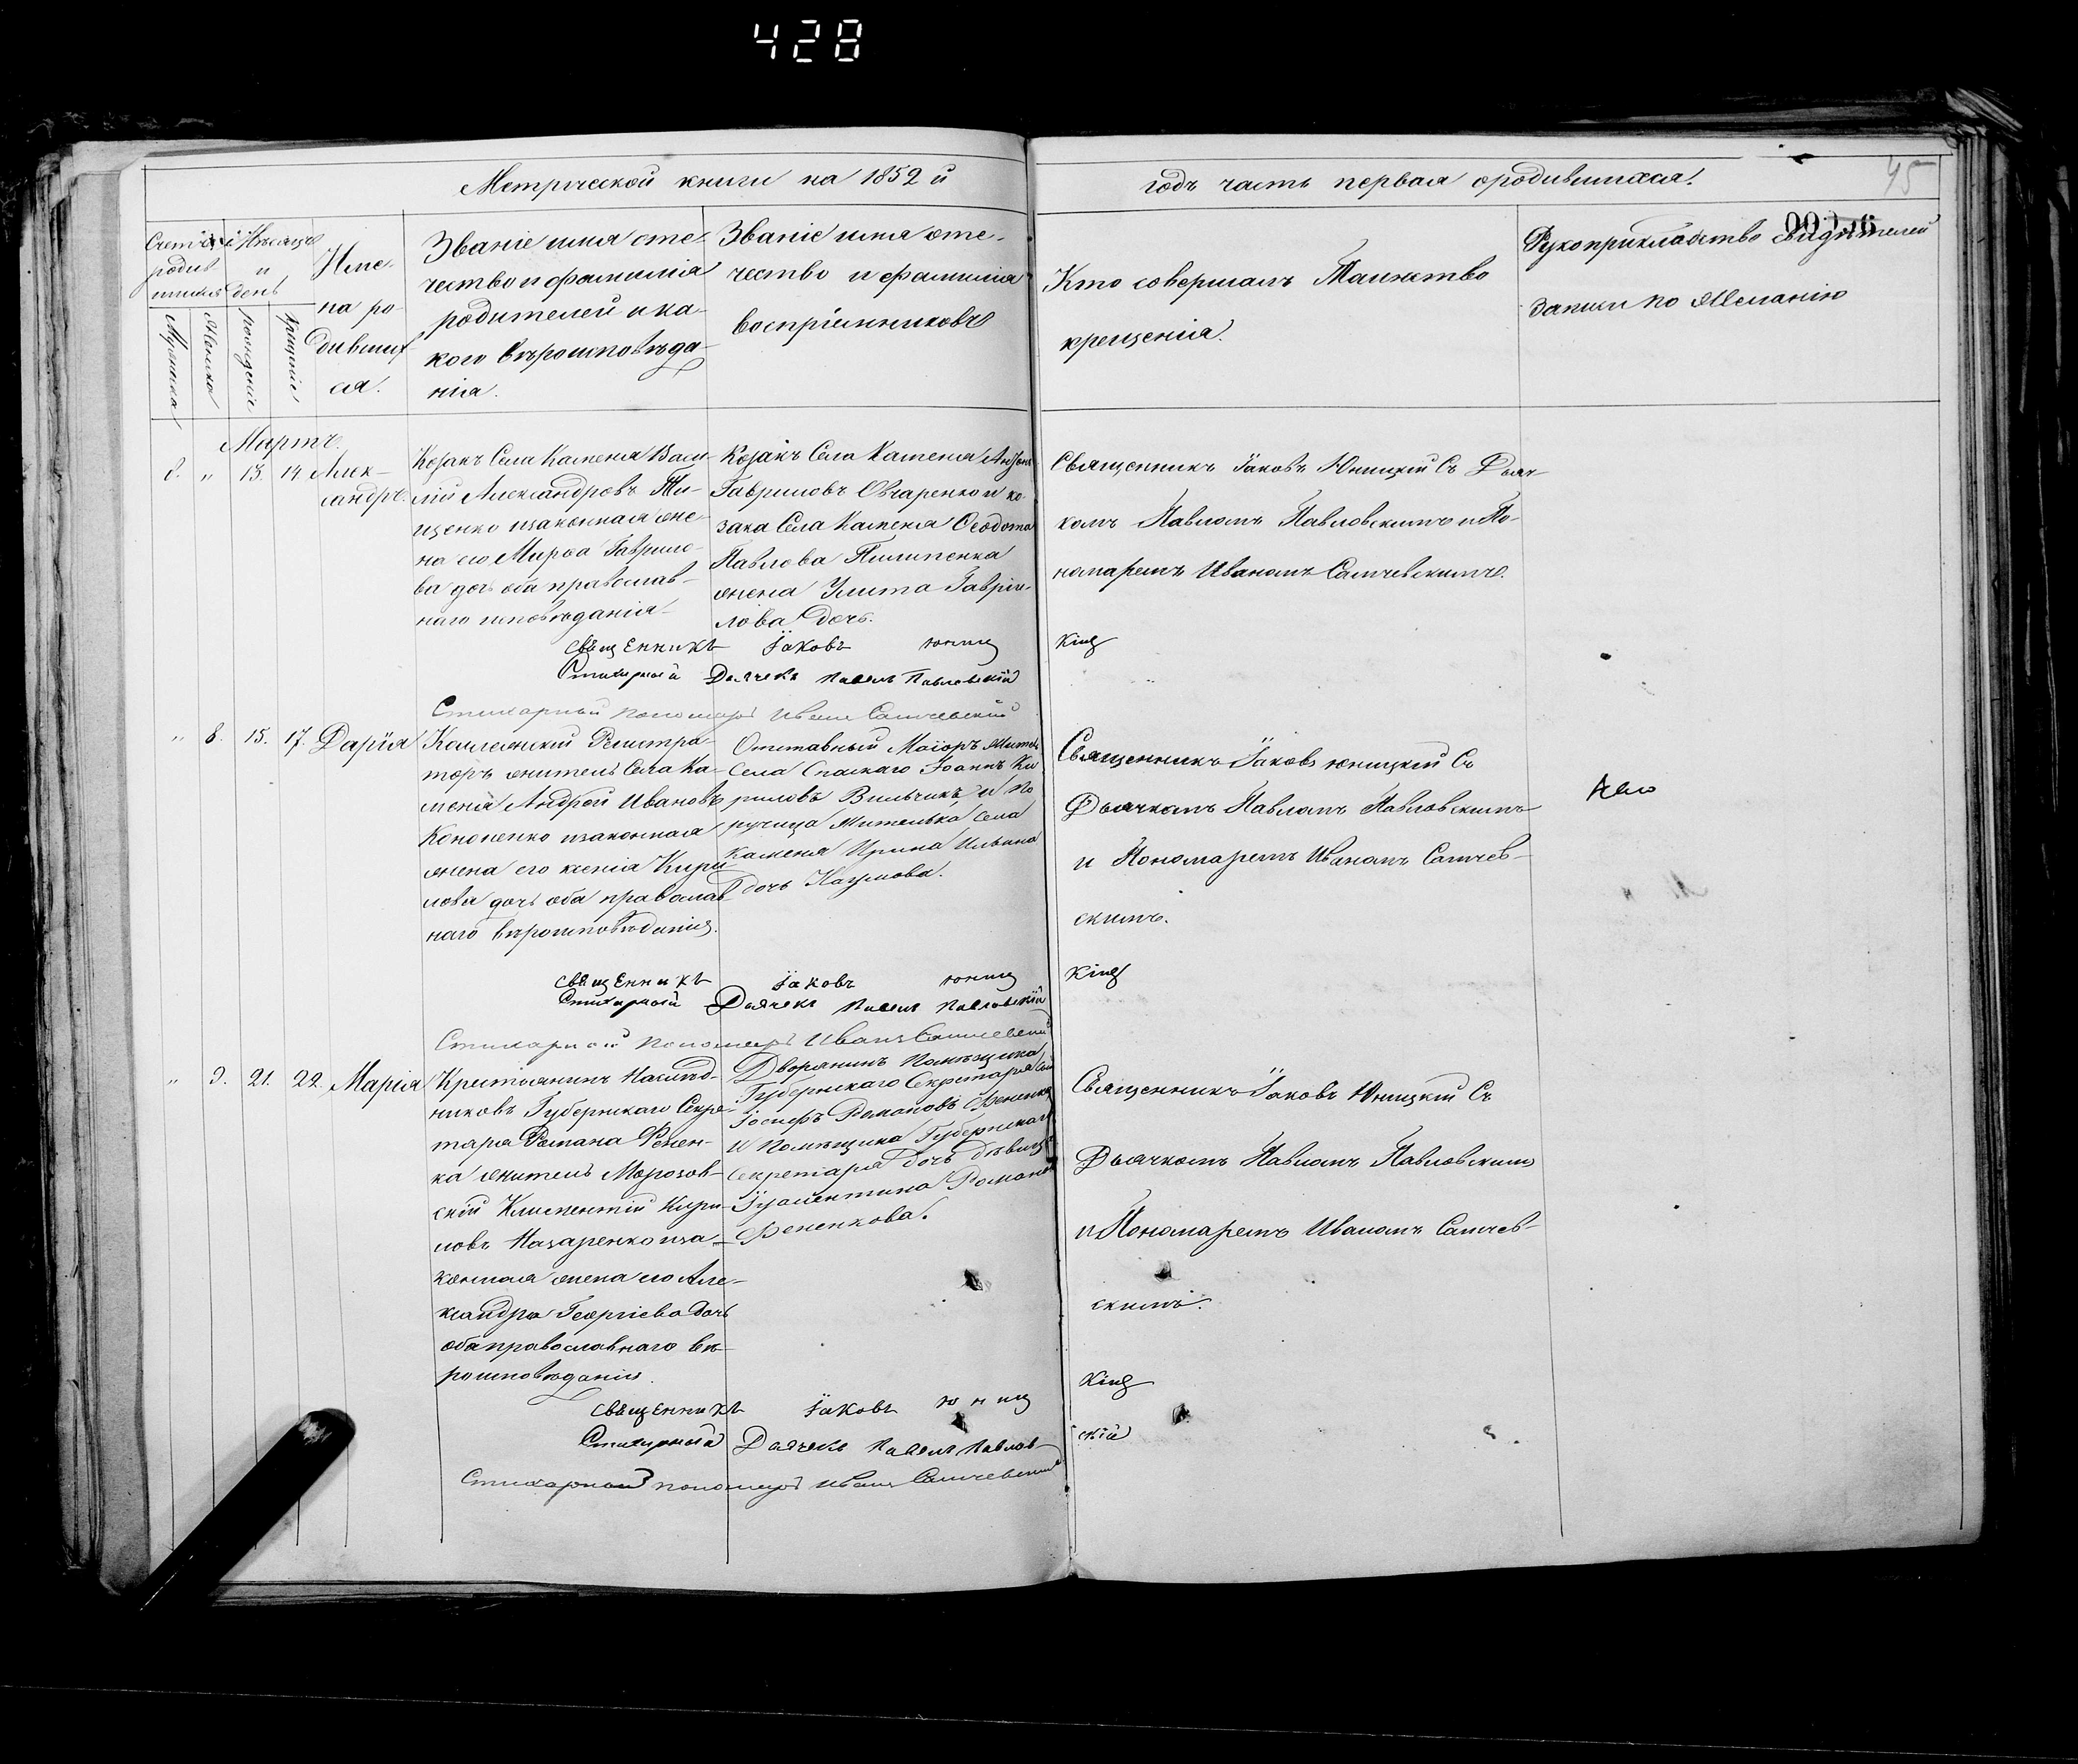 428
Метрической книги на 1852 й
годъ часть первая ородившихся.
45
Счетъ родившихся
Мѣсяцъ и день
Мужеска
Женска
рожденіе
Крещеніе
Имена родившихся.
Званіе имя оте-
чество и фамилія
родителей и ка-
кого вѣроисповѣда-
нія.
Званіе имя оте-
чество и фамилія
воспріемниковъ
Кто совершалъ Таинство
крещенія.
Рукоприкладство свидѣтелей
записи по Желанію
Мартъ.
13. 14 Алек-
сандръ.
Козакъ Села Каменя Васи-
лій Александровъ
изаконная же-
на его Марѳа Гаврило-
ва дочь оба православ-
наго исповѣданія
Козакъ Села Каменя
Гавриловъ Овчаренко и ко-
зака Села Каменя Ѳеодота
Павлова Пилипенка
жена Улита Гаврiи-
лова Дочь.
Священникъ Іаковъ Юницкій Съ Дьяч-
комъ Павломъ Павловскимъ и По-
номаремъ Иваномъ Самчевскимъ.
свѣщенникъ Іаковъ юниц кій
Стихарный Дьячекъ Павелъ Павловскій
Стихарный пономарь Иванъ Самчевскій
" 8. 15. 17. Дарія
Коллежскій Регистра-
торъ житель Села Ка-
меня Андрей Ивановъ
Кононенко изаконная
жена его ксенія Кири-
лова дочь оба православ-
наго вѣроисповѣданія.
Отставный Маіоръ жители
Села Спаскаго Іоаннъ Ки
риловъ Вильчикъ и По
ручица Жителька Села
Каменя Ирина
дочь Наумова.
Священникъ Іаковъ юницкій Съ
Дьячкомъ Павломъ Павловскимъ
и Пономаремъ Иваномъ Самчев-
скимъ.
свѣщенникъ Іаковъ юниц кій
Стихарный Дьячекъ Павелъ Павловскій
Стихарный пономарь Иванъ Самчевскій
" 9. 21. 22. Марія
Крестьянинъ Наслѣд-
никовъ Губернскаго Секре-
таря Романа Фенен-
ка житель Морозов-
скій Климентій Кири-
ловъ Назаренко иза-
конная жена его Але-
ксандра Георгіева Дочь
оба православнаго вѣ-
роисповѣданія.
Дворянинъ Помѣщика
Губернскаго Секретаря
Іосифъ Романовъ Фененко
и Помѣщика Губернскаго
Секретаря Дочь дѣвица
Романова
Фененкова.
Священникъ Іаковъ Юницкій Съ
Дьячкомъ Павломъ Павловскимъ
и Пономаремъ Иваномъ Самчев-
скимъ.
свѣщенникъ Іаковъ юниц кій
Стихарный Дьячекъ Павелъ Павлов- скій
Стихарный пономарь Иванъ Самчевскій